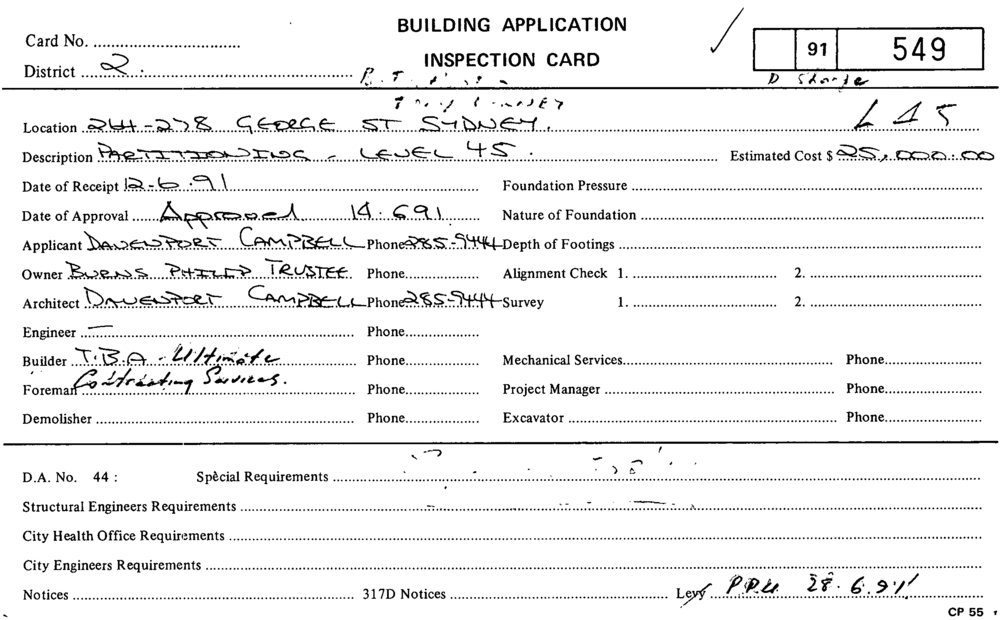 BUILDING APPLICATION
INSPECTION CARD
Card No.
91 549
District 2.
D Sharpe
Location 264-278 GEORGE ST SYDNEY. L45
Description PARTITIONING - LEVEL 45. Estimated Cost $ 25,000.00
Date of Receipt 12-6.91 Foundation Pressure
Date of Approval Approved 14.6.91 Nature of Foundation
Applicant DAVENPORT CAMPBELL Phone 285-9444 Depth of Footings
Owner BURNS PHILIP TRUSTEE Phone Alignment Check 1. 2.
Architect DAVENPORT CAMPBELL Phone 285-9444 Survey 1. 2.
Engineer — Phone
Builder T.B.A - Ultimate Phone Mechanical Services Phone
Foreman Contracting Services. Phone Project Manager Phone
Demolisher Phone Excavator Phone
D.A. No. 44 : Special Requirements
Structural Engineers Requirements
City Health Office Requirements
City Engineers Requirements
Notices 317D Notices Levy 28.6.91
CP 55